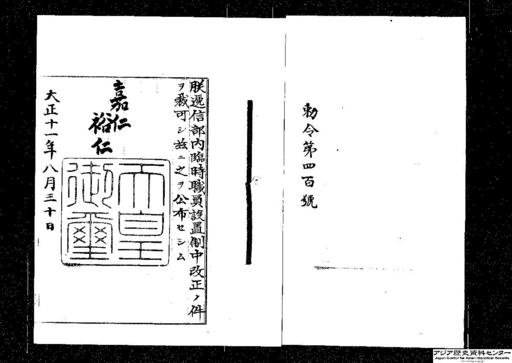 勅令第四百號
朕遞信部内臨時職員設置制中改正ノ件
ヲ裁可シ茲ニ之ヲ公布セシム
嘉仁
裕仁
天皇
御璽
大正十一年八月三十日
アジア歴史資料センター
Japan Center for Asian Historical Records